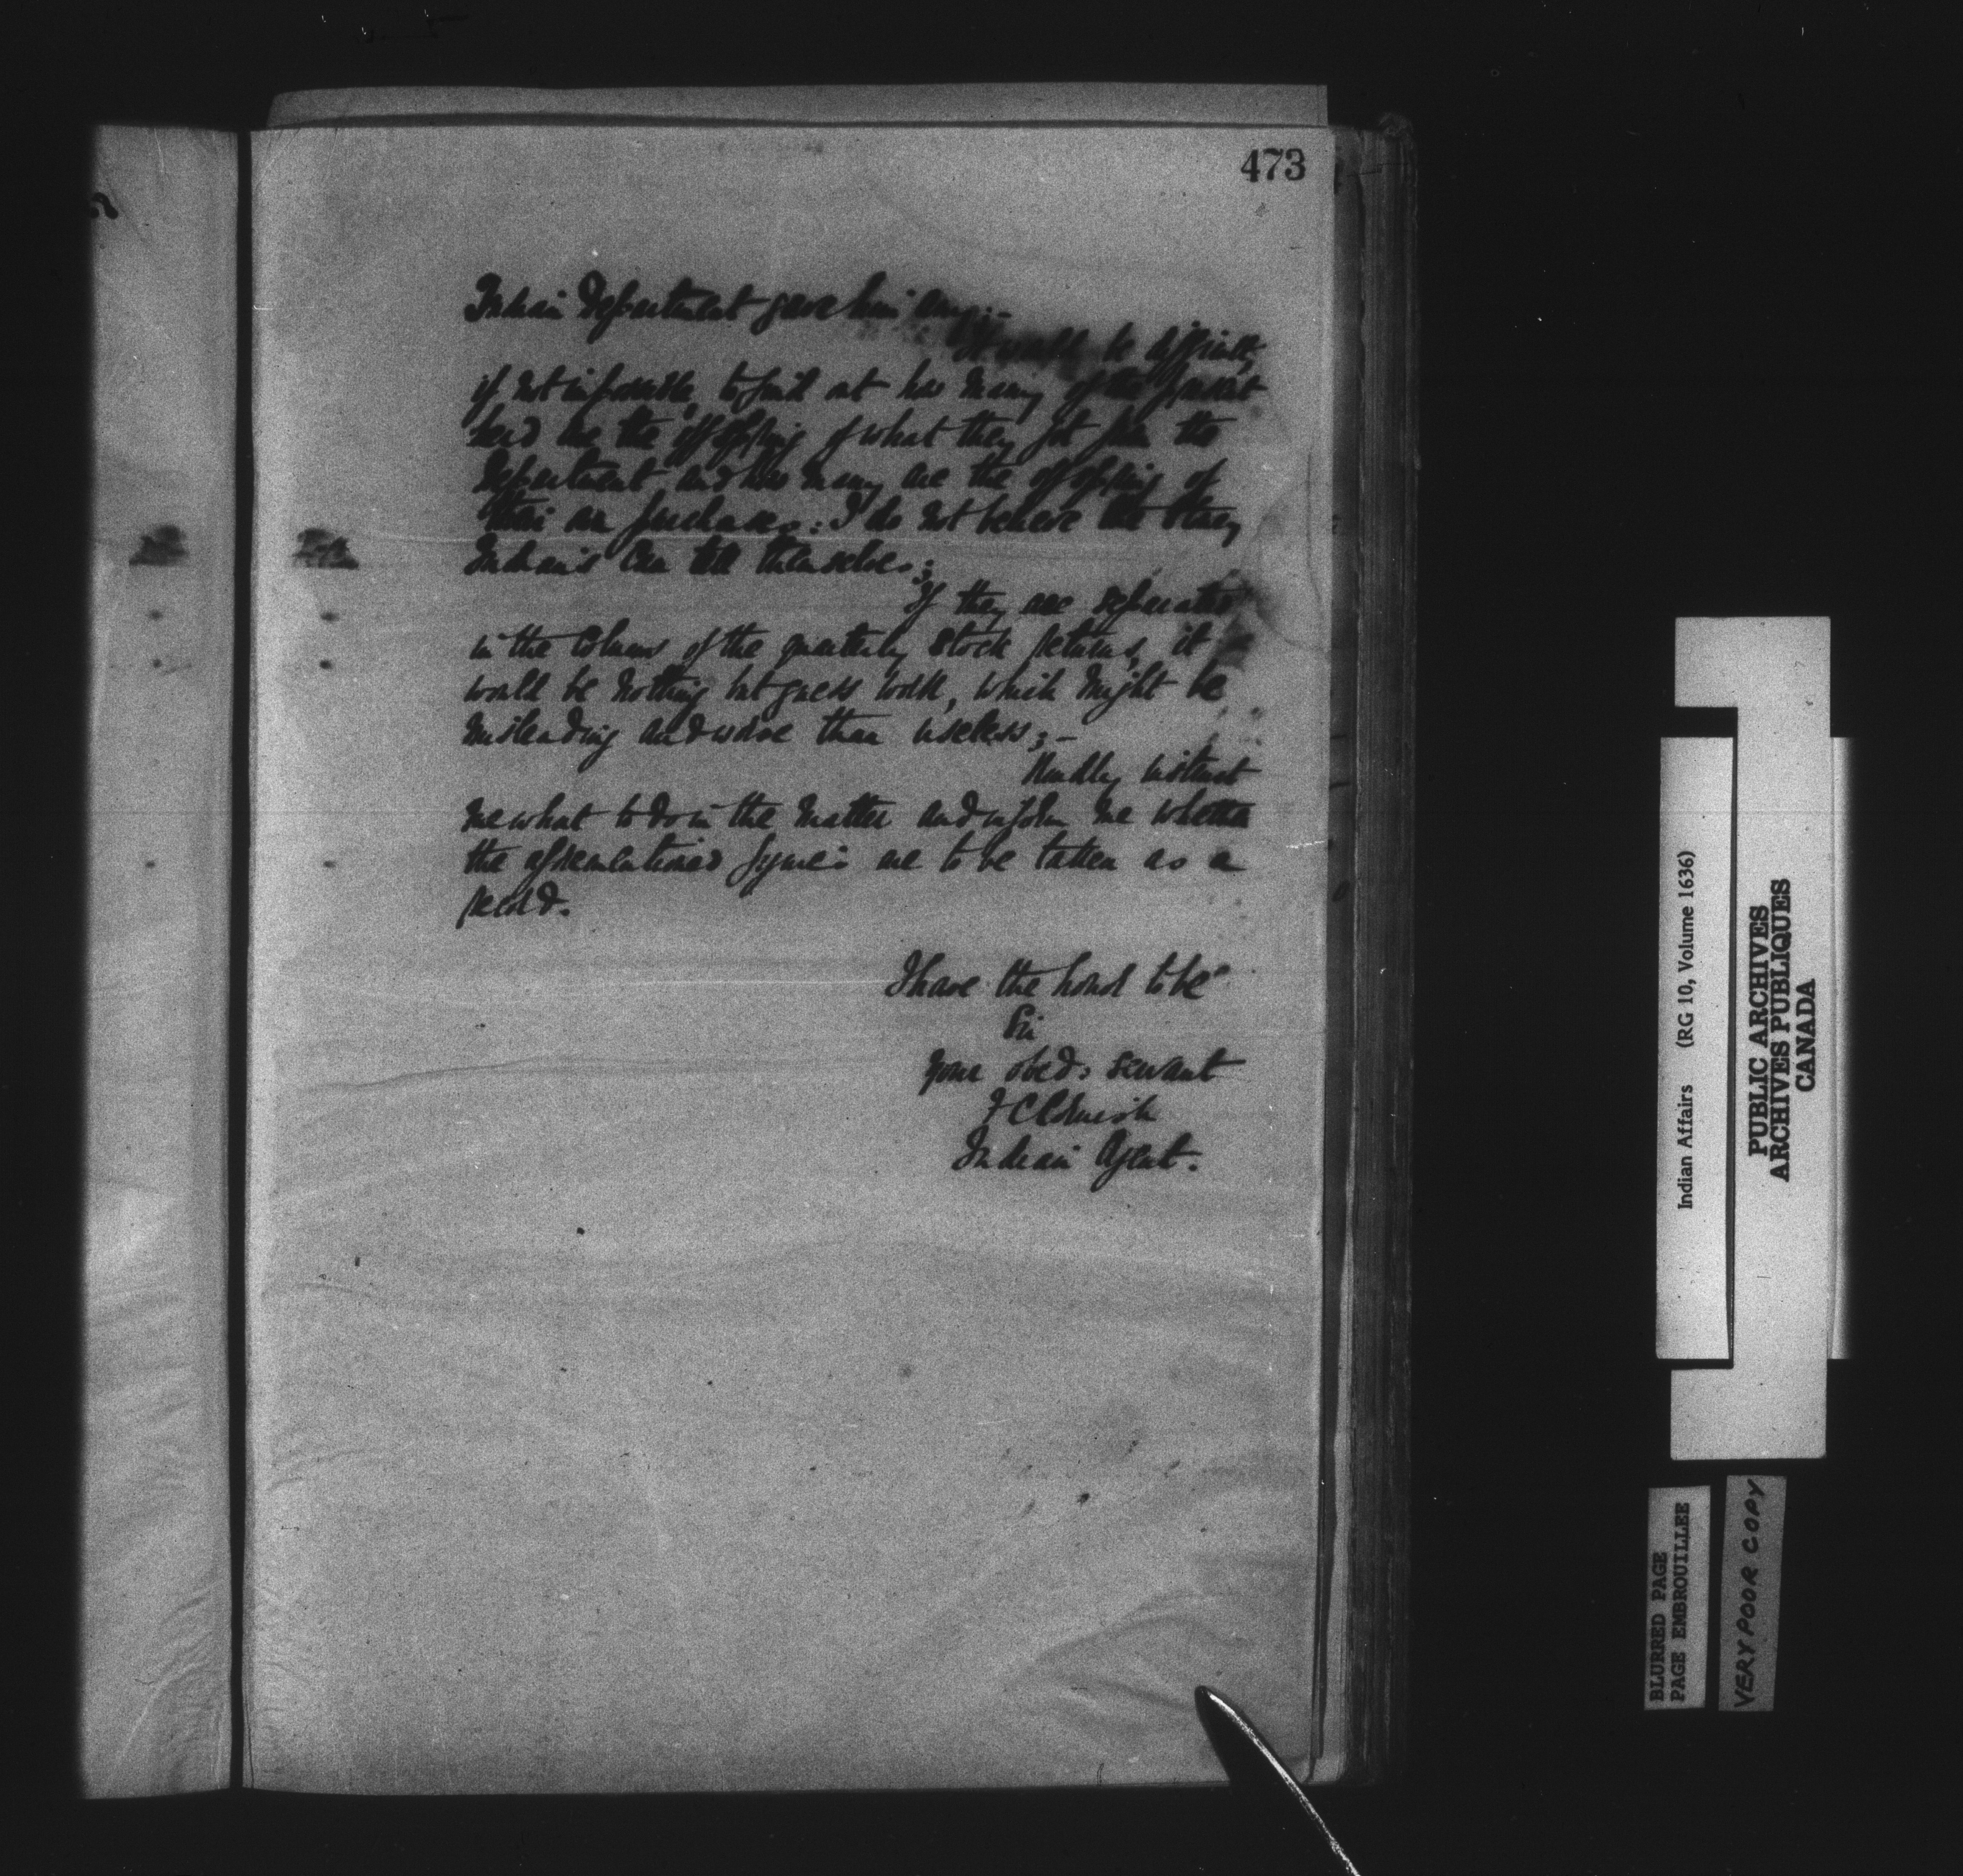 473
Indian Department gave him any:-
It would be difficult,
if not impossible, to find out how many of the present
herd are the offspring of what they got from the
Department and how many are the offspring of
their own purchases: I do not believe that the
Indians can tell themselves;
If they are separated
in the columns of the quarterly stock returns, it
would be nothing but guess work, which might be
misleading and worse than useless;-
Kindly instruct
me what to do in the matter and inform me whether
the aforementioned figures are to be taken as a
record.
I have the honor to be
Sir
your obed. servant
J C Cornish
Indian Agent.
Indian Affairs (RG 10, Volume 1636)
PUBLIC ARCHIVES
ARCHIVES PUBLIQUES
CANADA
BLURRED PAGE
PAGE EMBROUILLEE
VERY POOR COPY